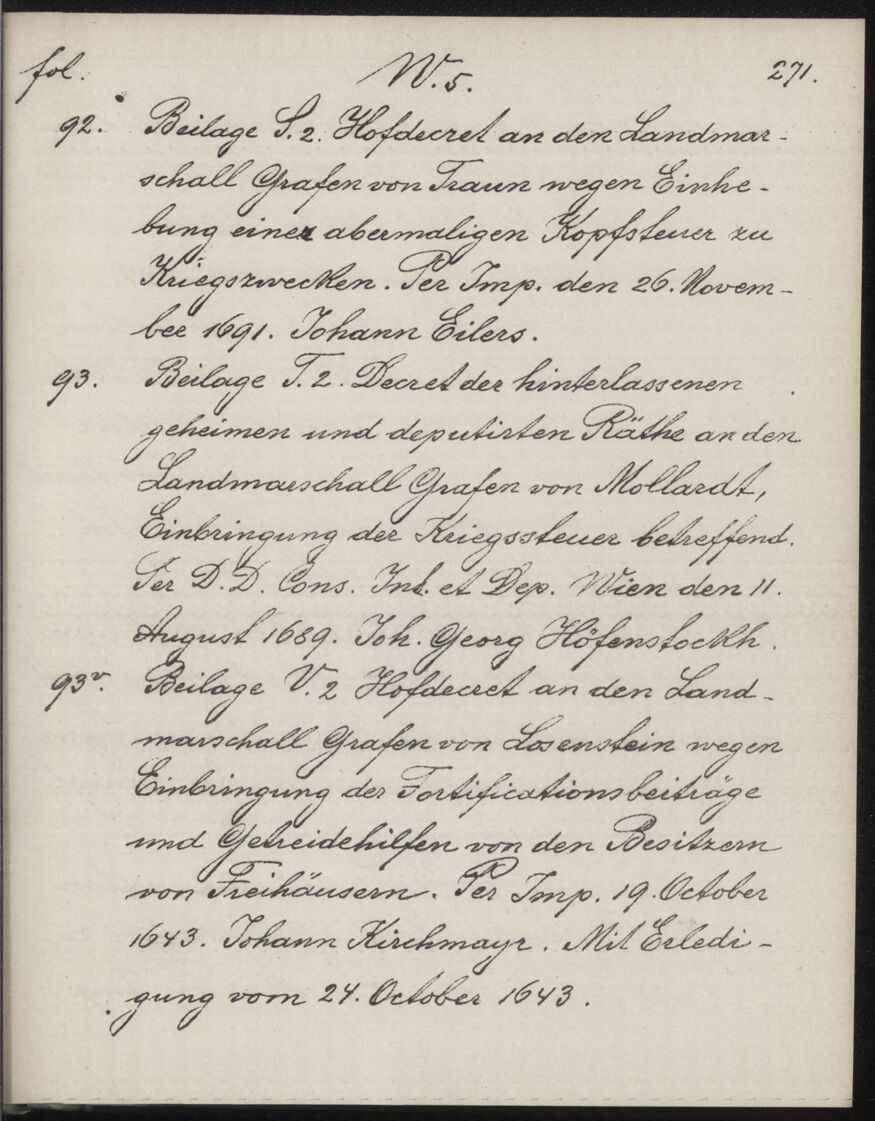 fol. W. 5. 271.
92. Beilage S. 2. Hofdecret an den Landmar-
schall Grafen von Traun wegen Einhe-
bung einer abermaligen Kopfsteuer zu
Kriegszwecken. Per Imp. den 26. Novem-
ber 1691. Johann Eilers.
93. Beilage T. 2. Decret der hinterlassenen
geheimen und deputirten Räthe an den
Landmarschall Grafen von Mollardt,
Einbringung der Kriegssteuer betreffend.
Per D. D. Cons. Int. et Dep. Wien den 11.
August 1689. Joh. Georg Höfenstockh.
93v. Beilage V. 2 Hofdecret an den Land-
marschall Grafen von Losenstein wegen
Einbringung der Fortificationsbeiträge
und Getreidehilfen von den Besitzern
von Freihäusern. Per Imp. 19. October
1643. Johann Kirchmayr. Mit Erledi-
gung vom 24. October 1643.